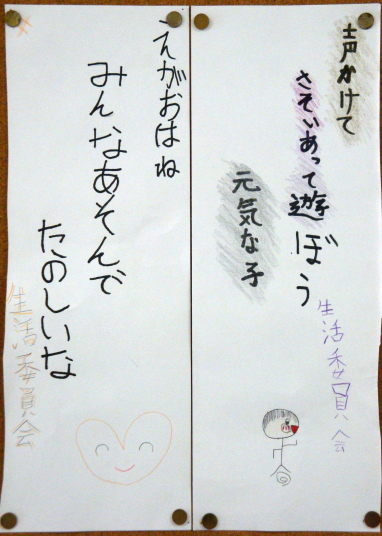 声かけて
さそいあって遊ぼう
元気な子
生活委員会
えがおはね
みんなあそんで
たのしいな
生活委員会